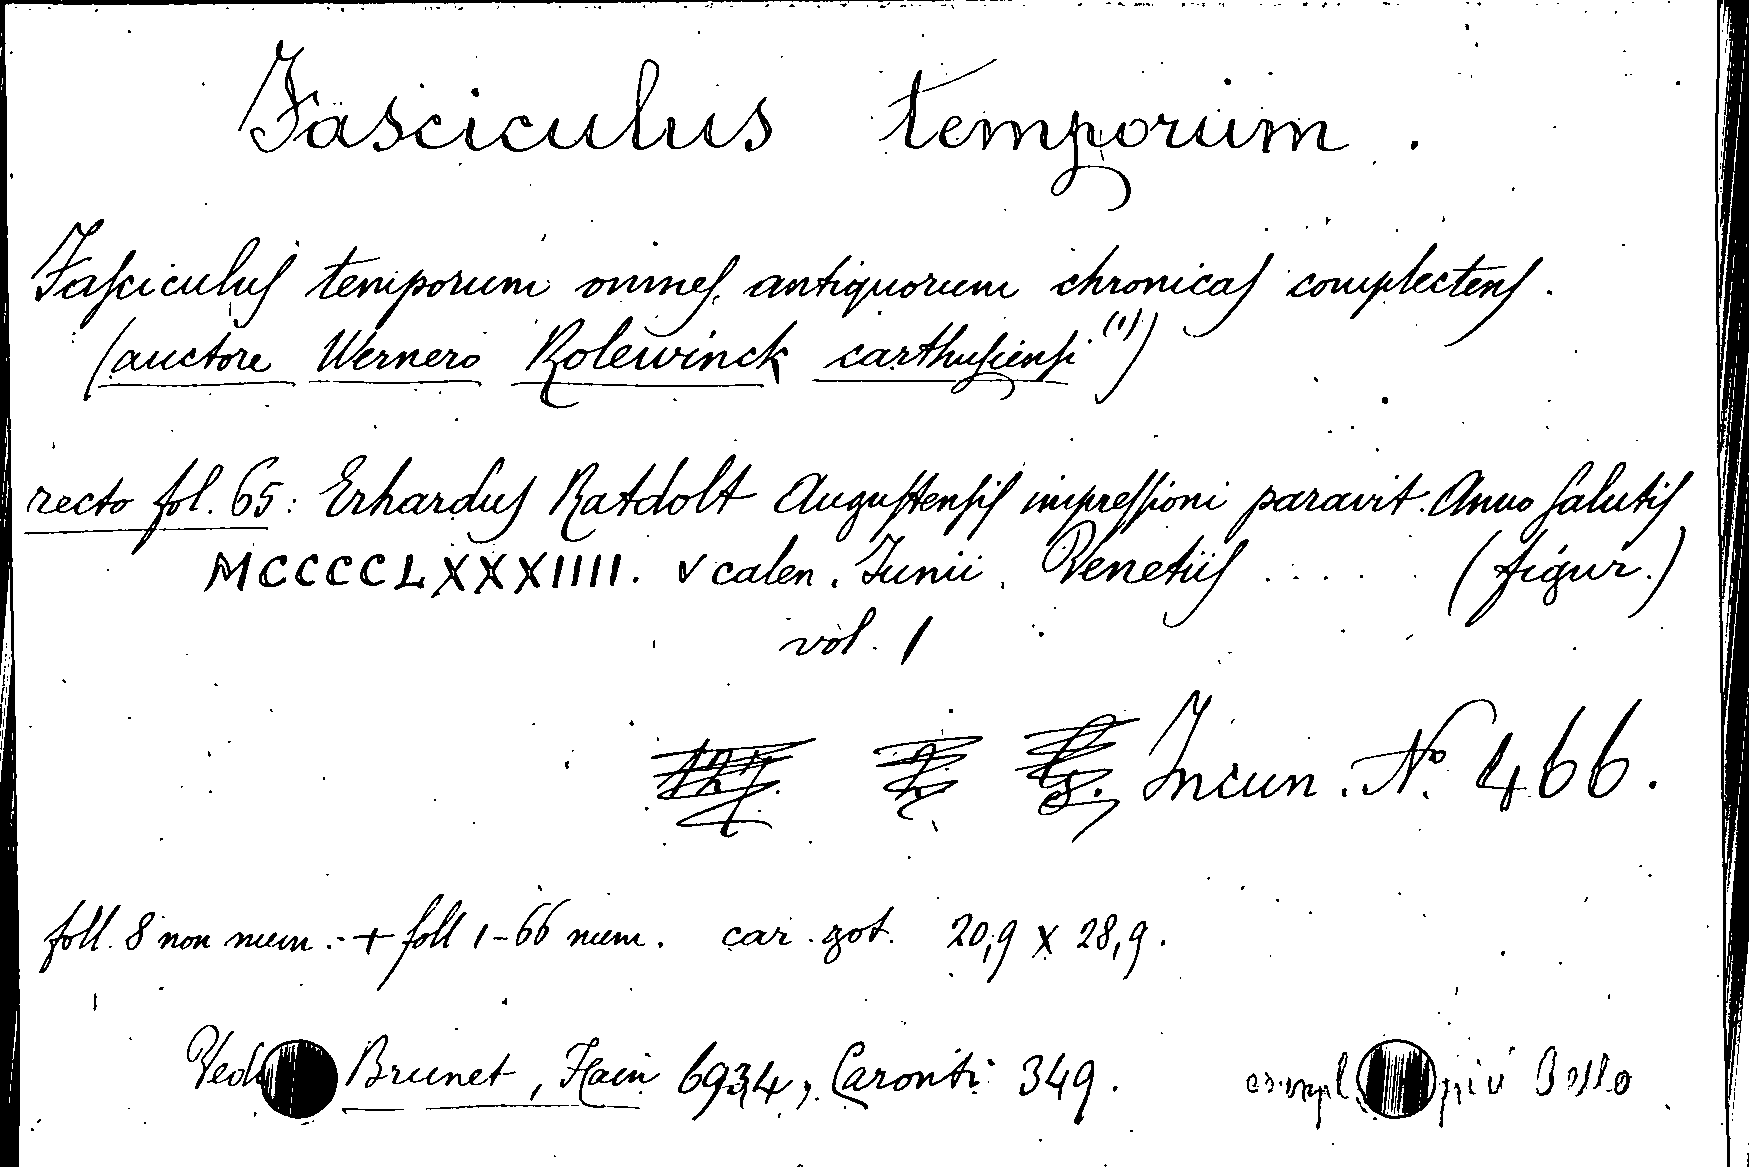 Fasciculus temporum.
Faſciculuſ temporum omneſ antiquorum chronicaſ complectenſ.
(auctore Wernero Rolewinck carthuſienſi (1))
recto fol. 65: Erharduſ Ratdolt Auguſtenſiſ impreſſioni paravit. Anno ſalutiſ
MCCCCLXXXIIII. V calen. Junii. Venetiiſ ..... (figur.)
vol. 1
Incun. No. 466.
foll. 8 non num. + foll 1-66 num. car. got. 20,9 x 28,9.
Brunet, Hain 6934, Caronti 349.
più Bello